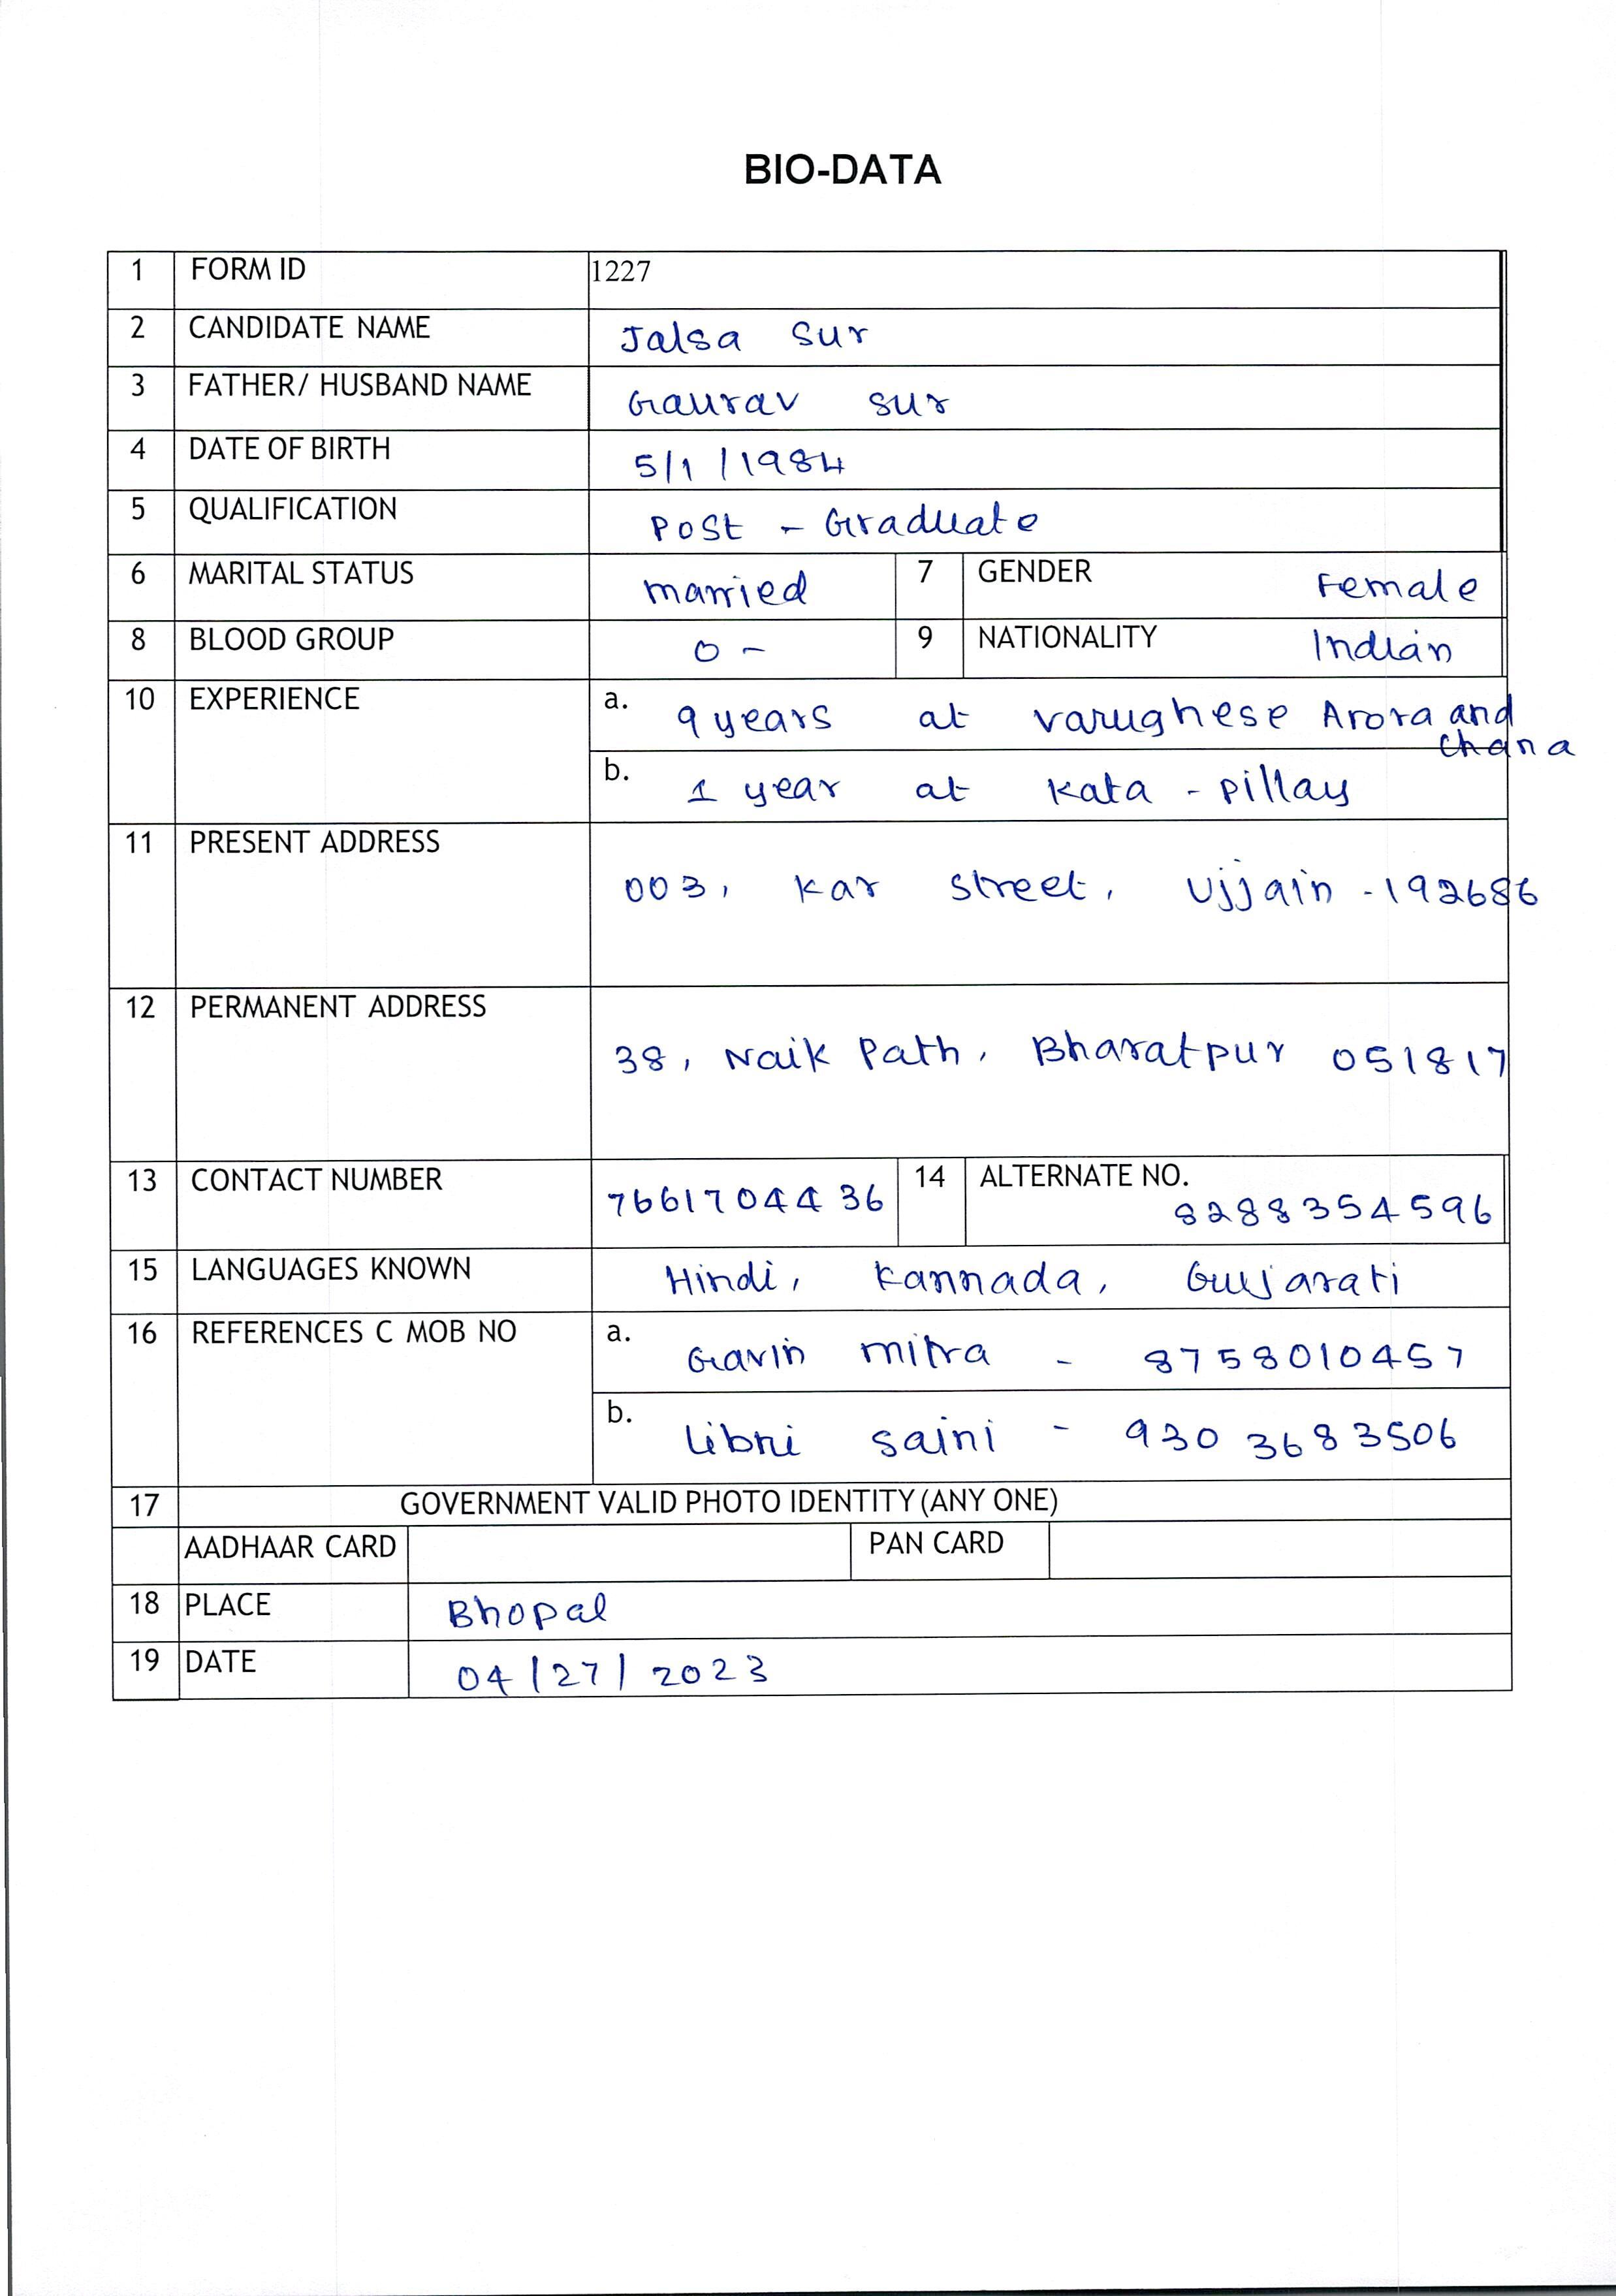 BIO-DATA
1 FORM ID 1227
2 CANDIDATE NAME Jalsa Sur
3 FATHER/ HUSBAND NAME Gaurav Sur
4 DATE OF BIRTH 5/1/1984
5 QUALIFICATION Post - Graduate
6 MARITAL STATUS married 7 GENDER Female
8 BLOOD GROUP O - 9 NATIONALITY Indian
10 EXPERIENCE a. 9 years at varughese Arora and
chana
b. 1 year at Kata - pillay
11 PRESENT ADDRESS
003, Kar Street, Ujjain - 192686
12 PERMANENT ADDRESS
38, Naik Path, Bharatpur 051817
13 CONTACT NUMBER 7661704436 14 ALTERNATE NO.
8288354596
15 LANGUAGES KNOWN Hindi, Kannada, Gujarati
16 REFERENCES C MOB NO a. Gavin mitra - 8758010457
b. libni saini - 930 3683506
17 GOVERNMENT VALID PHOTO IDENTITY (ANY ONE)
AADHAAR CARD PAN CARD
18 PLACE Bhopal
19 DATE 04/27/2023